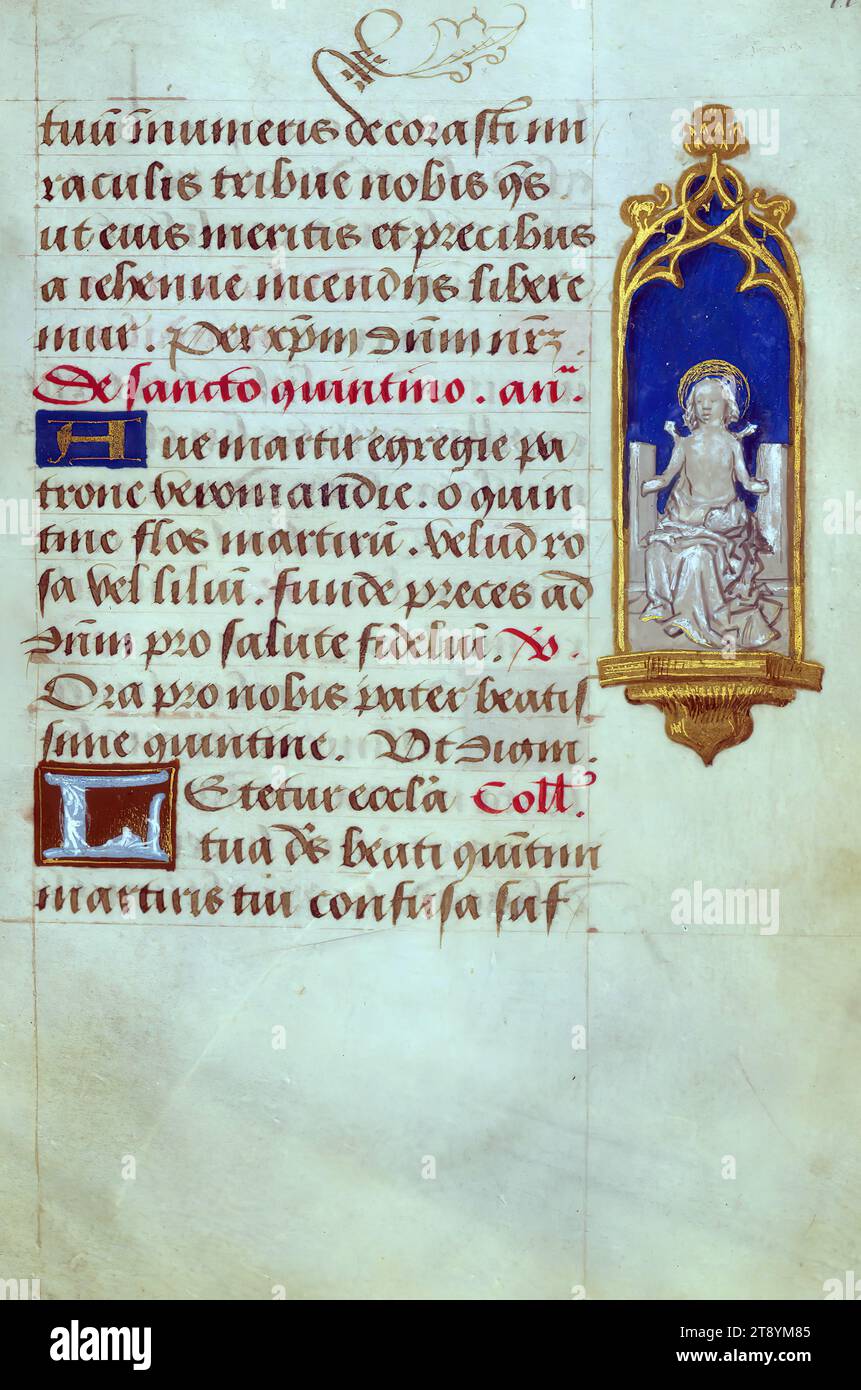 tuū īnumeris decorasti mi
raculis tribue nobis q̄s
ut eius meritis et precibus
a iehenne incendijs libere
mur . Per xp̄m dūm nr̄ꝫ .
De sancto quintino . an̄.
Aue martir egregie pa
trone veromandie . o quin
tine flos martirū . velud ro
sa vel liliū . funde preces ad
dūm pro salute fideliū . V .
Ora pro nobis pater beatis
sime quintine . Ut dign .
Letetur eccl̄a Coll̄.
tua ds̄ beati quītini
martiris tui confusa suf
alamy
Image ID: 2T8YM85
www.alamy.com